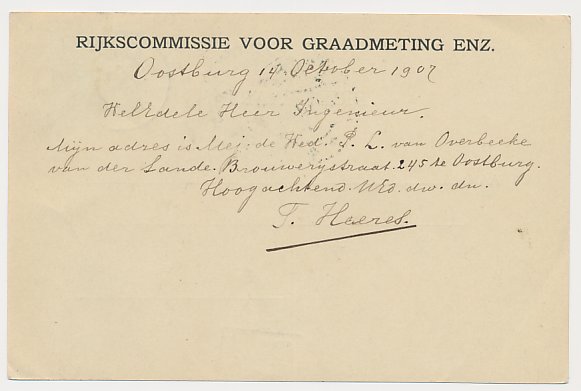 RIJKSCOMMISSIE VOOR GRAADMETING ENZ.
Oostburg 14 October 1907
WelEdele Heer Ingenieur.
Mijn adres is Mej: de Wed. P. L. van Overbeeke
van der Lande. Brouwerijstraat. 245 te Oostburg.
Hoogachtend. UEd. dw. dn.
T. Heeres.